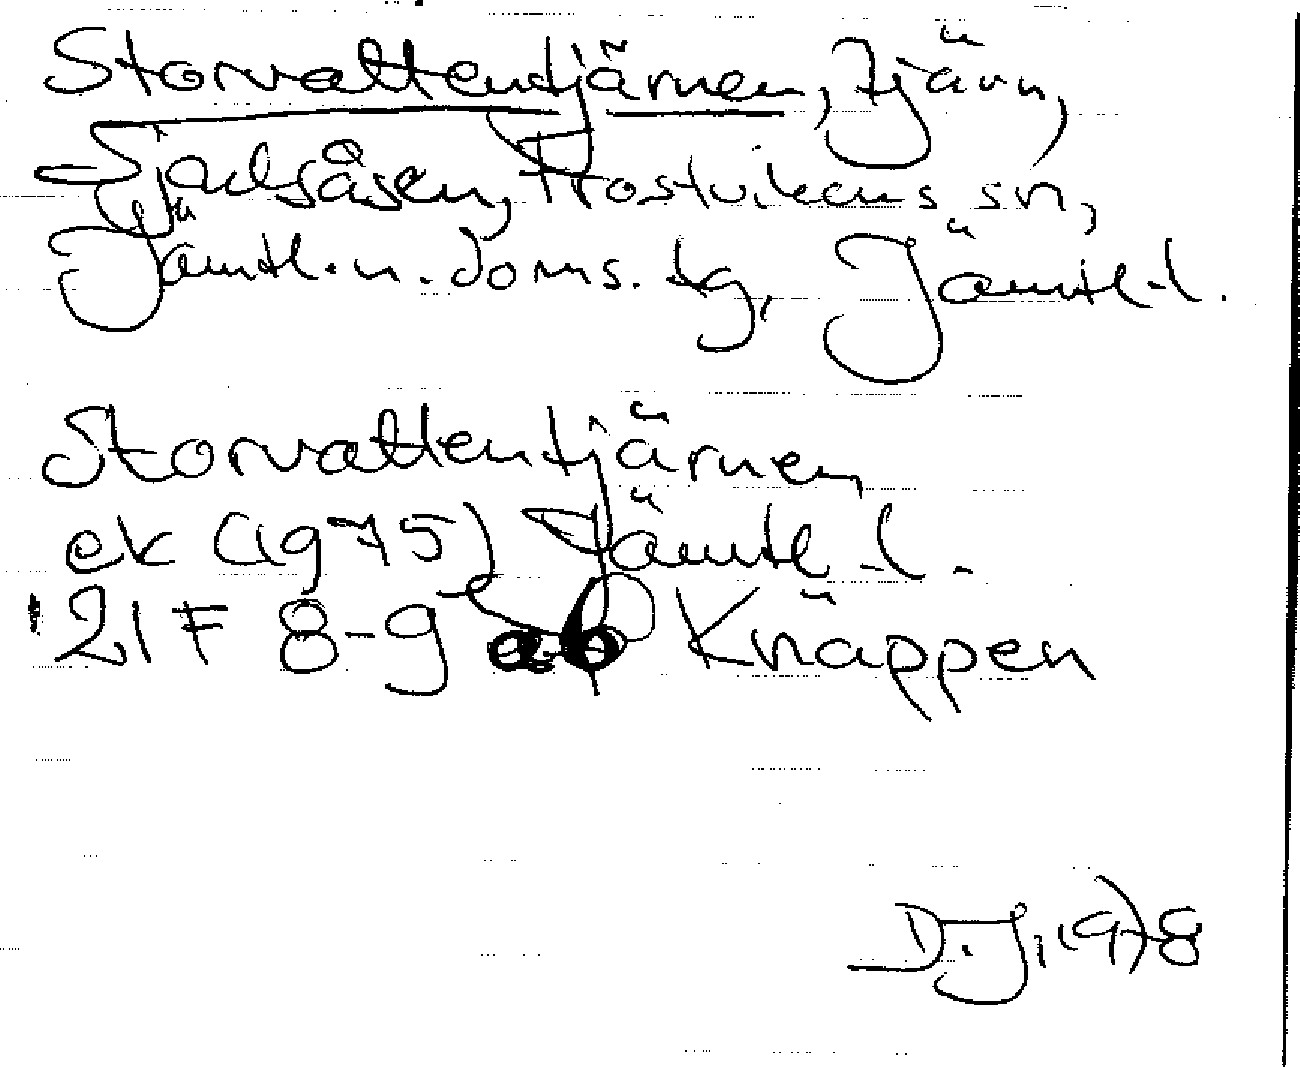 Storvattentjärnen, tjärn,
Gjadsåsen, Frostvikens sn,
Jämtl. n. doms. tg, Jämtl. l.
Storvattentjärnen
ek (1975) Jämtl. l.
21 F 8-9 a-b Knäppen
D. J. 1978